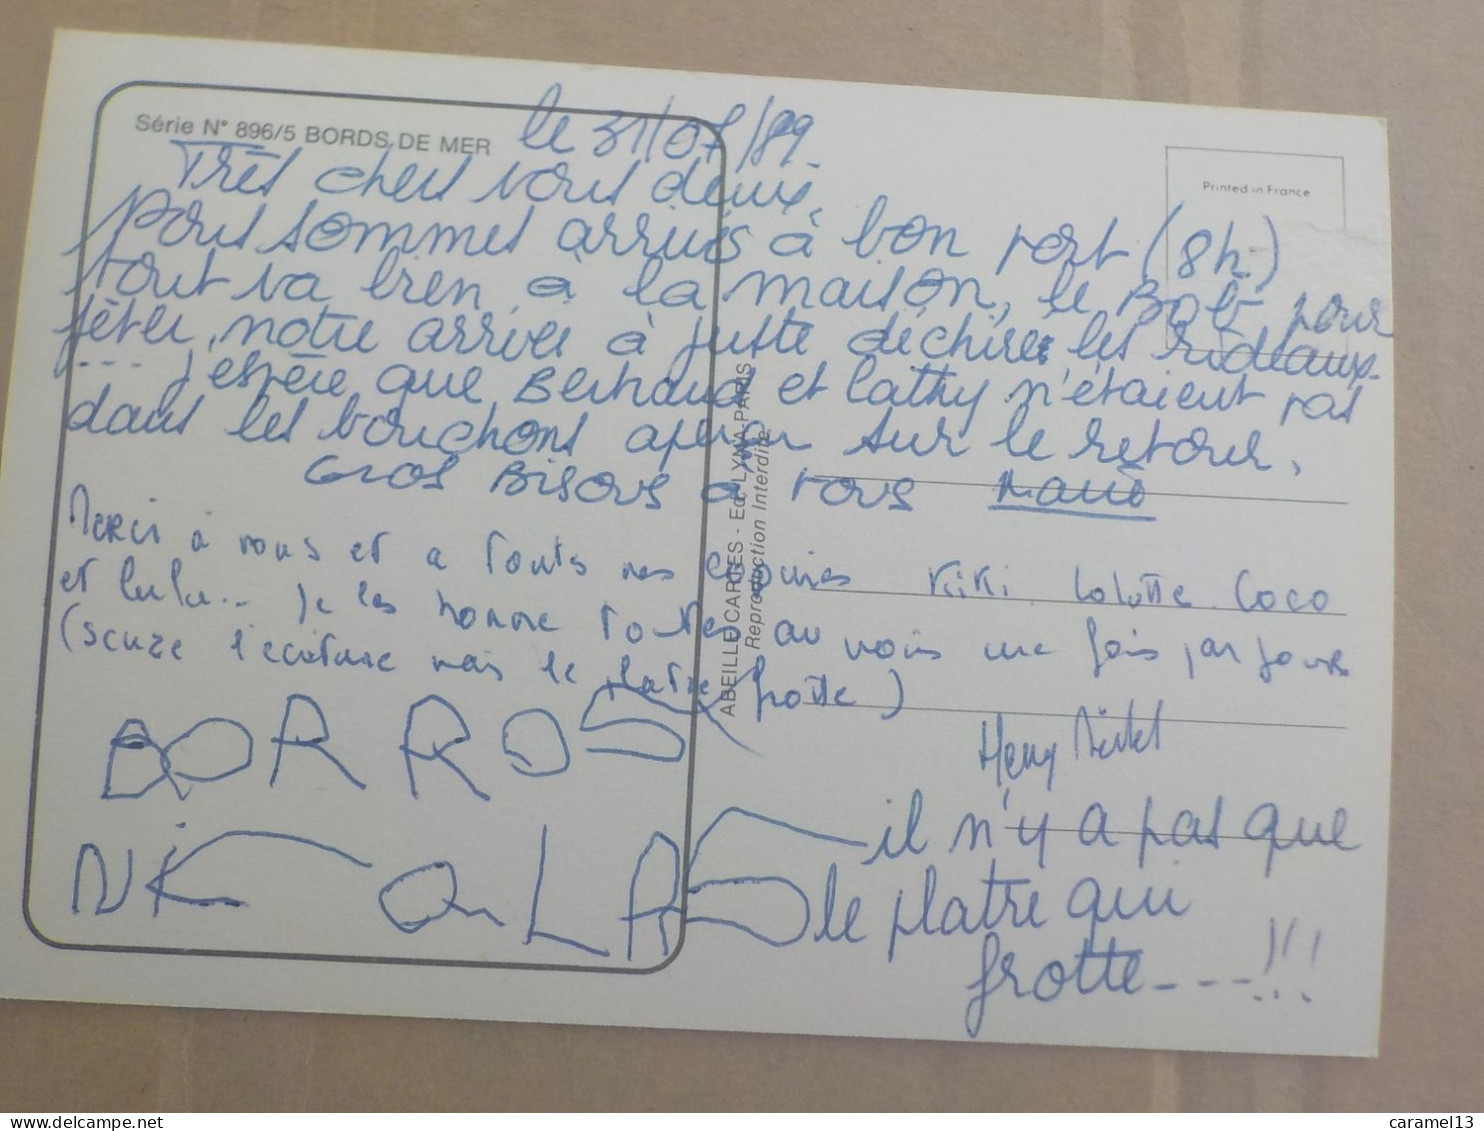 Série N° 896/5 BORDS DE MER
le 31/07/89.
Très chers vous deux,
Nous sommes arrivés à bon port (8h.)
tout va bien à la maison, le Bob pour
fêter notre arrivée à juste déchirer les rideaux
---- j'espère que Bertrand et Cathy n'étaient pas
dans les bouchons aperçu sur le retour,
Gros Bisous à tous
Merci à vous et a touts nos copines Kiki Lolotte Coco
et Lulu... je les honore toutes au moins une fois par jours
(scuze l'ecriture mais le platre frotte)
BORROS
NiCOLAS
Printed in France
ABEILLE CARTES - Ed. LYNA-PARIS
Reproduction Interdite
il n'y a pas que
le platre qui
frotte----!!!
caramel13